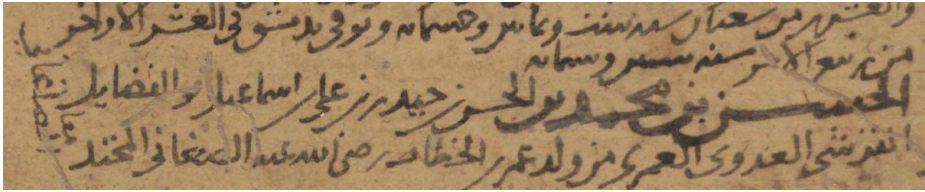 والعشرين من شعبان سنه ست وثمانين وخمسمائه وتوفى بدمشق فى العشر الاواخر
من ربيع الاخر سنه ستين وستمائه
الحسن بن محمد بن الحسن بن حيدر بن على بن اسماعيل ابو الفضايل
القرشى العدوى العمرى من ولد عمر بن الخطاب رضى الله عنه الصغانى المحتد